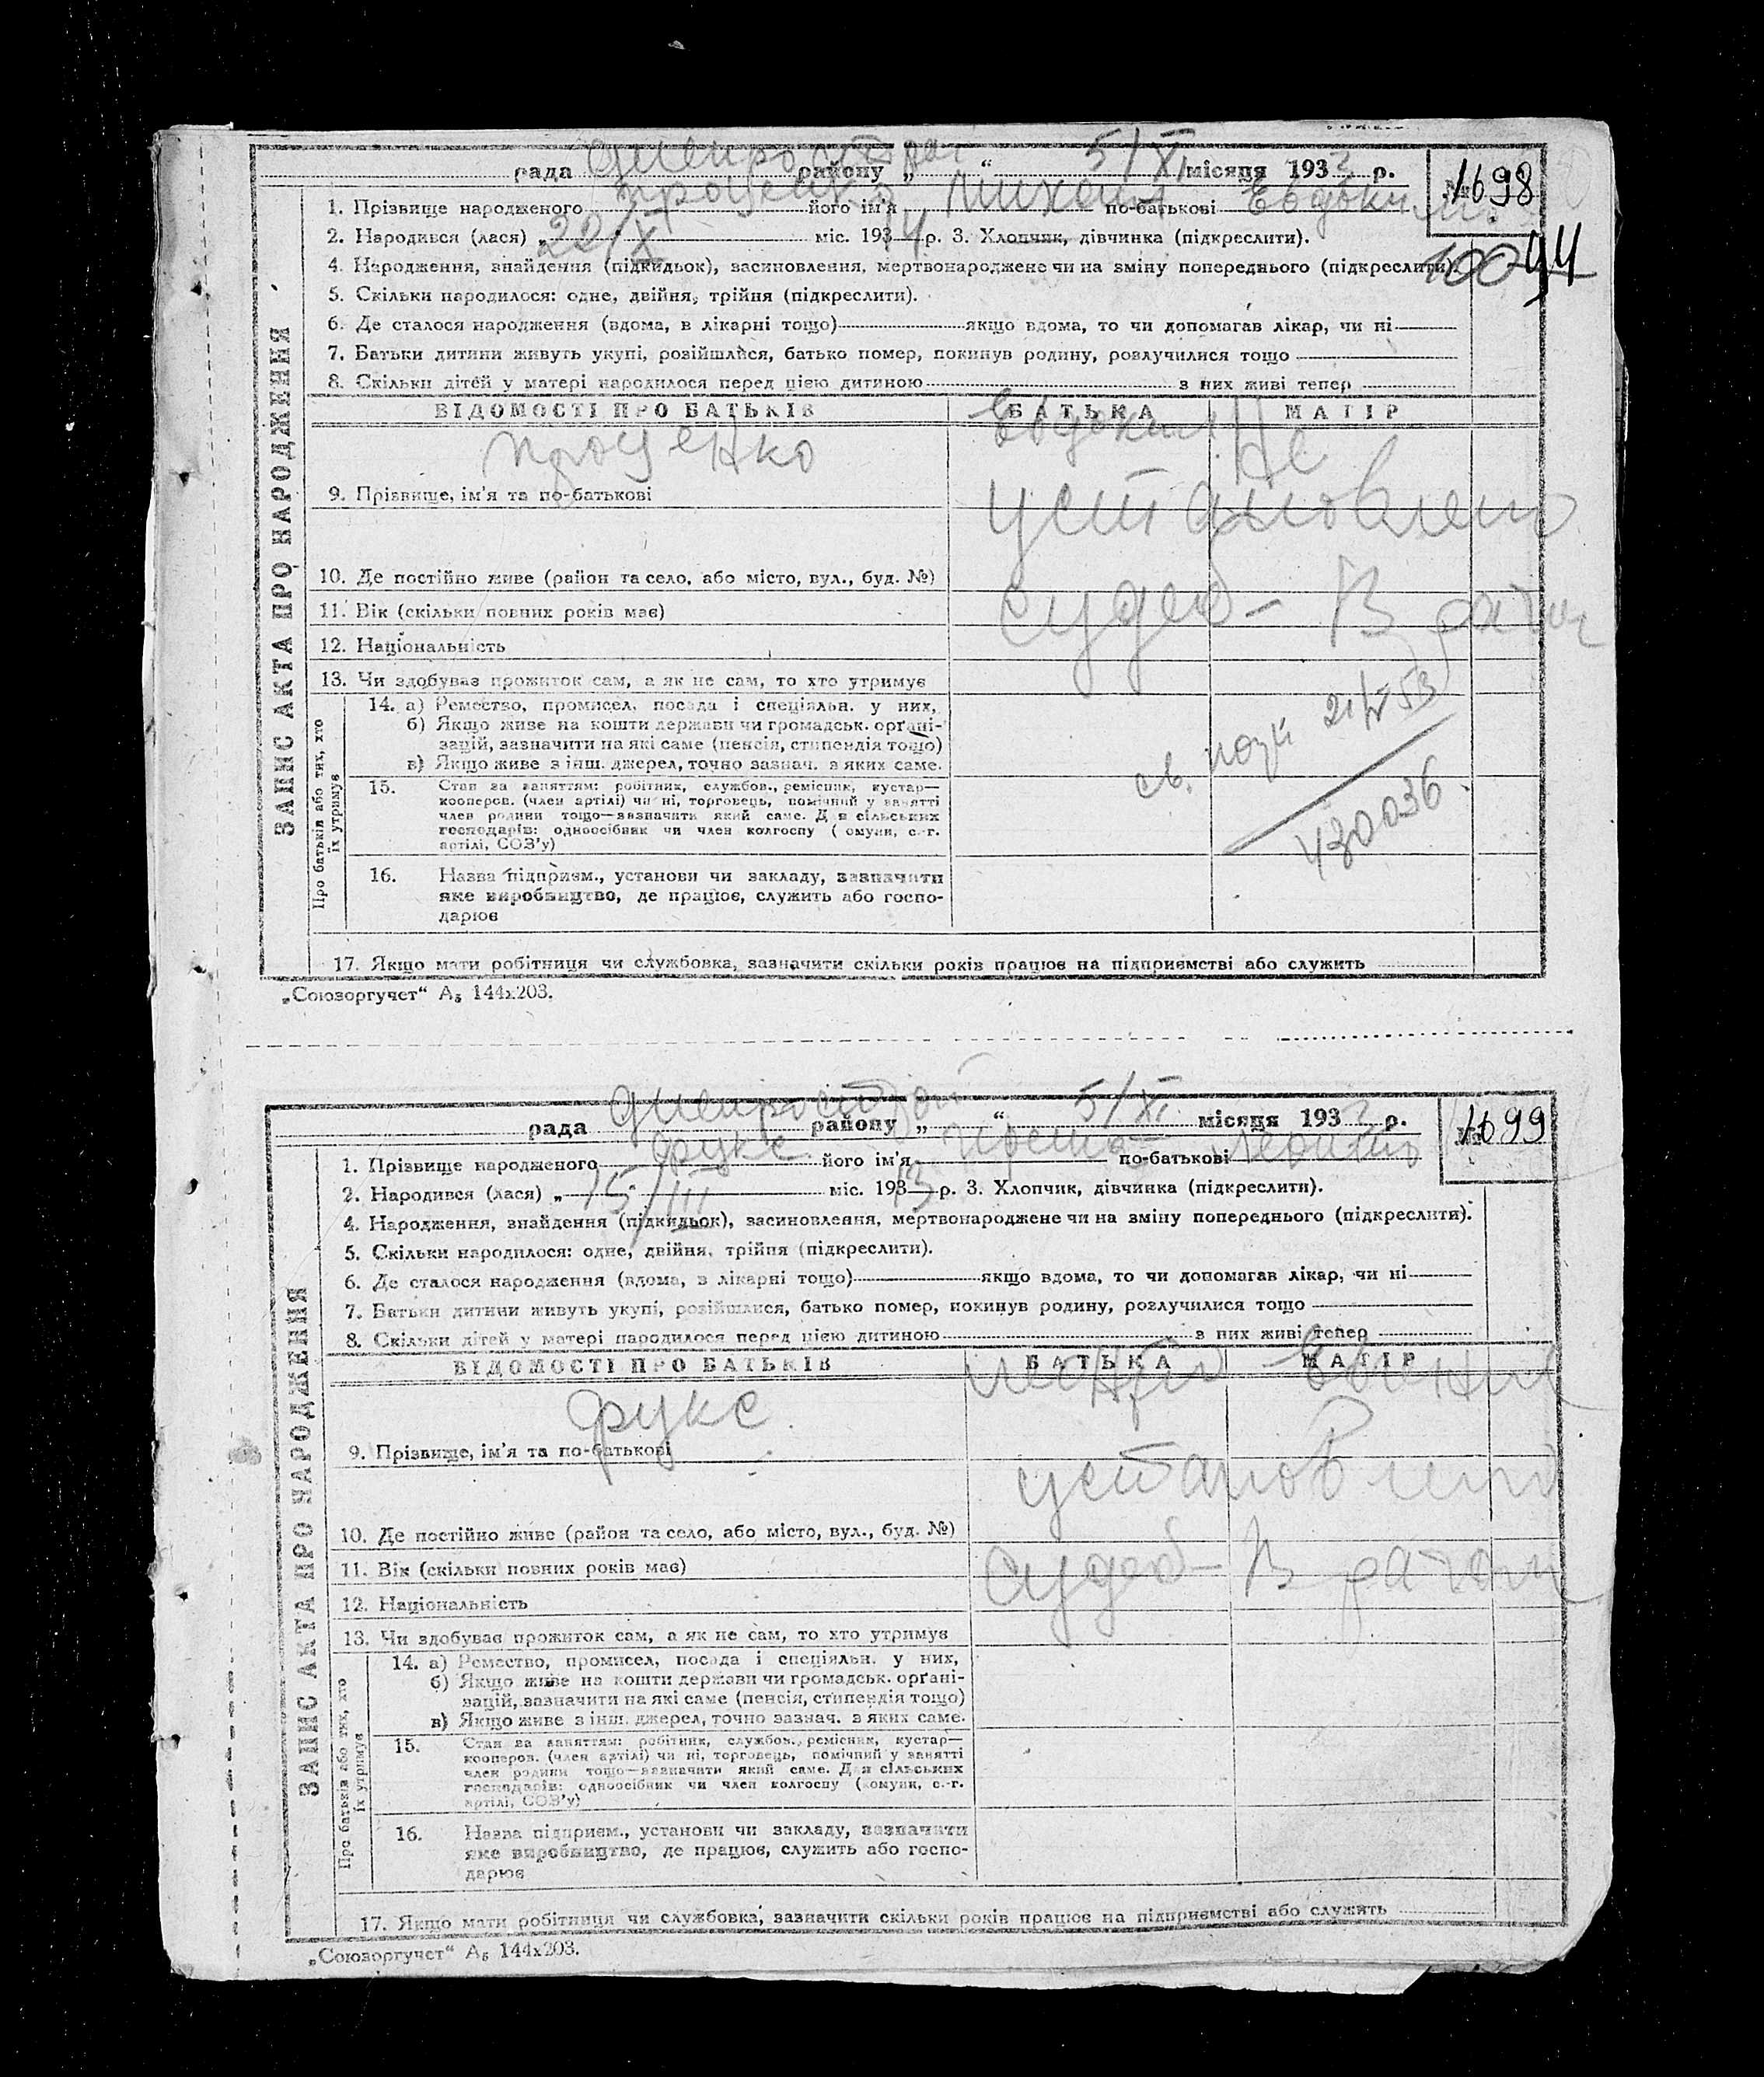 Днепрострой 5/XI
рада району „ “ місяця 1933 р. № 1698
1. Прізвище народженого Проценко його ім'я Михаил по-батькові Евдоким.
2. Народився (лася) „22/X міс. 193 р. 3. Хлопчик, дівчинка (підкреслити).
4. Народження, знайдення (підкидьок), засиновлення, мертвонароджене чи на зміну попереднього (підкреслити).
5. Скільки народилося: одне, двійня, трійня (підкреслити).
6. Де сталося народження (вдома, в лікарні тощо) якщо вдома, то чи допомагав лікар, чи ні
7. Батьки дитини живуть укупі, розійшлися, батько помер, покинув родину, розлучилися тощо
8. Скільки дітей у матері народилося перед цією дитиною з них живі тепер
ВІДОМОСТІ ПРО БАТЬКІВ БАТЬКА МАТІР
Проценко Евдоким Не
9. Прізвище, ім'я та по-батькові установлено
10. Де постійно живе (район та село, або місто, вул., буд. №)
11. Вік (скільки повних років має)
12. Національність
13. Чи здобуває прожиток сам, а як не сам, то хто утримує
14. а) Ремество, промисел, посада і спеціяльн. у них,
б) Якщо живе на кошти держави чи громадськ. орґані-
зацій, зазначити на які саме (пенсія, стипендія тощо)
в) Якщо живе з інш. джерел, точно зазнач. з яких саме.
15. Стан за заняттям: робітник, службов., ремісник, кустар—
кооперов. (член артілі) чи ні, торговець, помічний у занятті
член родини тощо—зазначити який саме. Для сільських
господарів: одноосібник чи член колгоспу (комуни, с.-г.
артілі, СОЗ'у)
430036
16. Назва підприєм., установи чи закладу, зазначити
яке виробництво, де працює, служить або госпо-
дарює
17. Якщо мати робітниця чи службовка, зазначити скільки років працює на підприємстві або служить
ЗАПИС АКТА ПРО НАРОДЖЕННЯ
Про батьків або тих, хто
їх утримує
„Союзоргучет“ А₅ 144х203.
Днепрострой 5/XI
рада району „ “ місяця 1933 р. № 1699
1. Прізвище народженого Фукс його ім'я по-батькові
2. Народився (лася) „15/III міс. 1913 р. 3. Хлопчик, дівчинка (підкреслити).
4. Народження, знайдення (підкидьок), засиновлення, мертвонароджене чи на зміну попереднього (підкреслити).
5. Скільки народилося: одне, двійня, трійня (підкреслити).
6. Де сталося народження (вдома, в лікарні тощо) якщо вдома, то чи допомагав лікар, чи ні
7. Батьки дитини живуть укупі, розійшлися, батько помер, покинув родину, розлучилися тощо
8. Скільки дітей у матері народилося перед цією дитиною з них живі тепер
ВІДОМОСТІ ПРО БАТЬКІВ БАТЬКА МАТІР
Фукс
9. Прізвище, ім'я та по-батькові
установлено
10. Де постійно живе (район та село, або місто, вул., буд. №)
11. Вік (скільки повних років має)
12. Національність
13. Чи здобуває прожиток сам, а як не сам, то хто утримує
14. а) Ремество, промисел, посада і спеціяльн. у них,
б) Якщо живе на кошти держави чи громадськ. орґані-
зацій, зазначити на які саме (пенсія, стипендія тощо)
в) Якщо живе з інш. джерел, точно зазнач. з яких саме.
15. Стан за заняттям: робітник, службов., ремісник, кустар—
кооперов. (член артілі) чи ні, торговець, помічний у занятті
член родини тощо—зазначити який саме. Для сільських
господарів: одноосібник чи член колгоспу (комуни, с.-г.
артілі, СОЗ'у)
16. Назва підприєм., установи чи закладу, зазначити
яке виробництво, де працює, служить або госпо-
дарює
17. Якщо мати робітниця чи службовка, зазначити скільки років працює на підприємстві або служить
ЗАПИС АКТА ПРО НАРОДЖЕННЯ
Про батьків або тих, хто
їх утримує
„Союзоргучет“ А₅ 144х203.